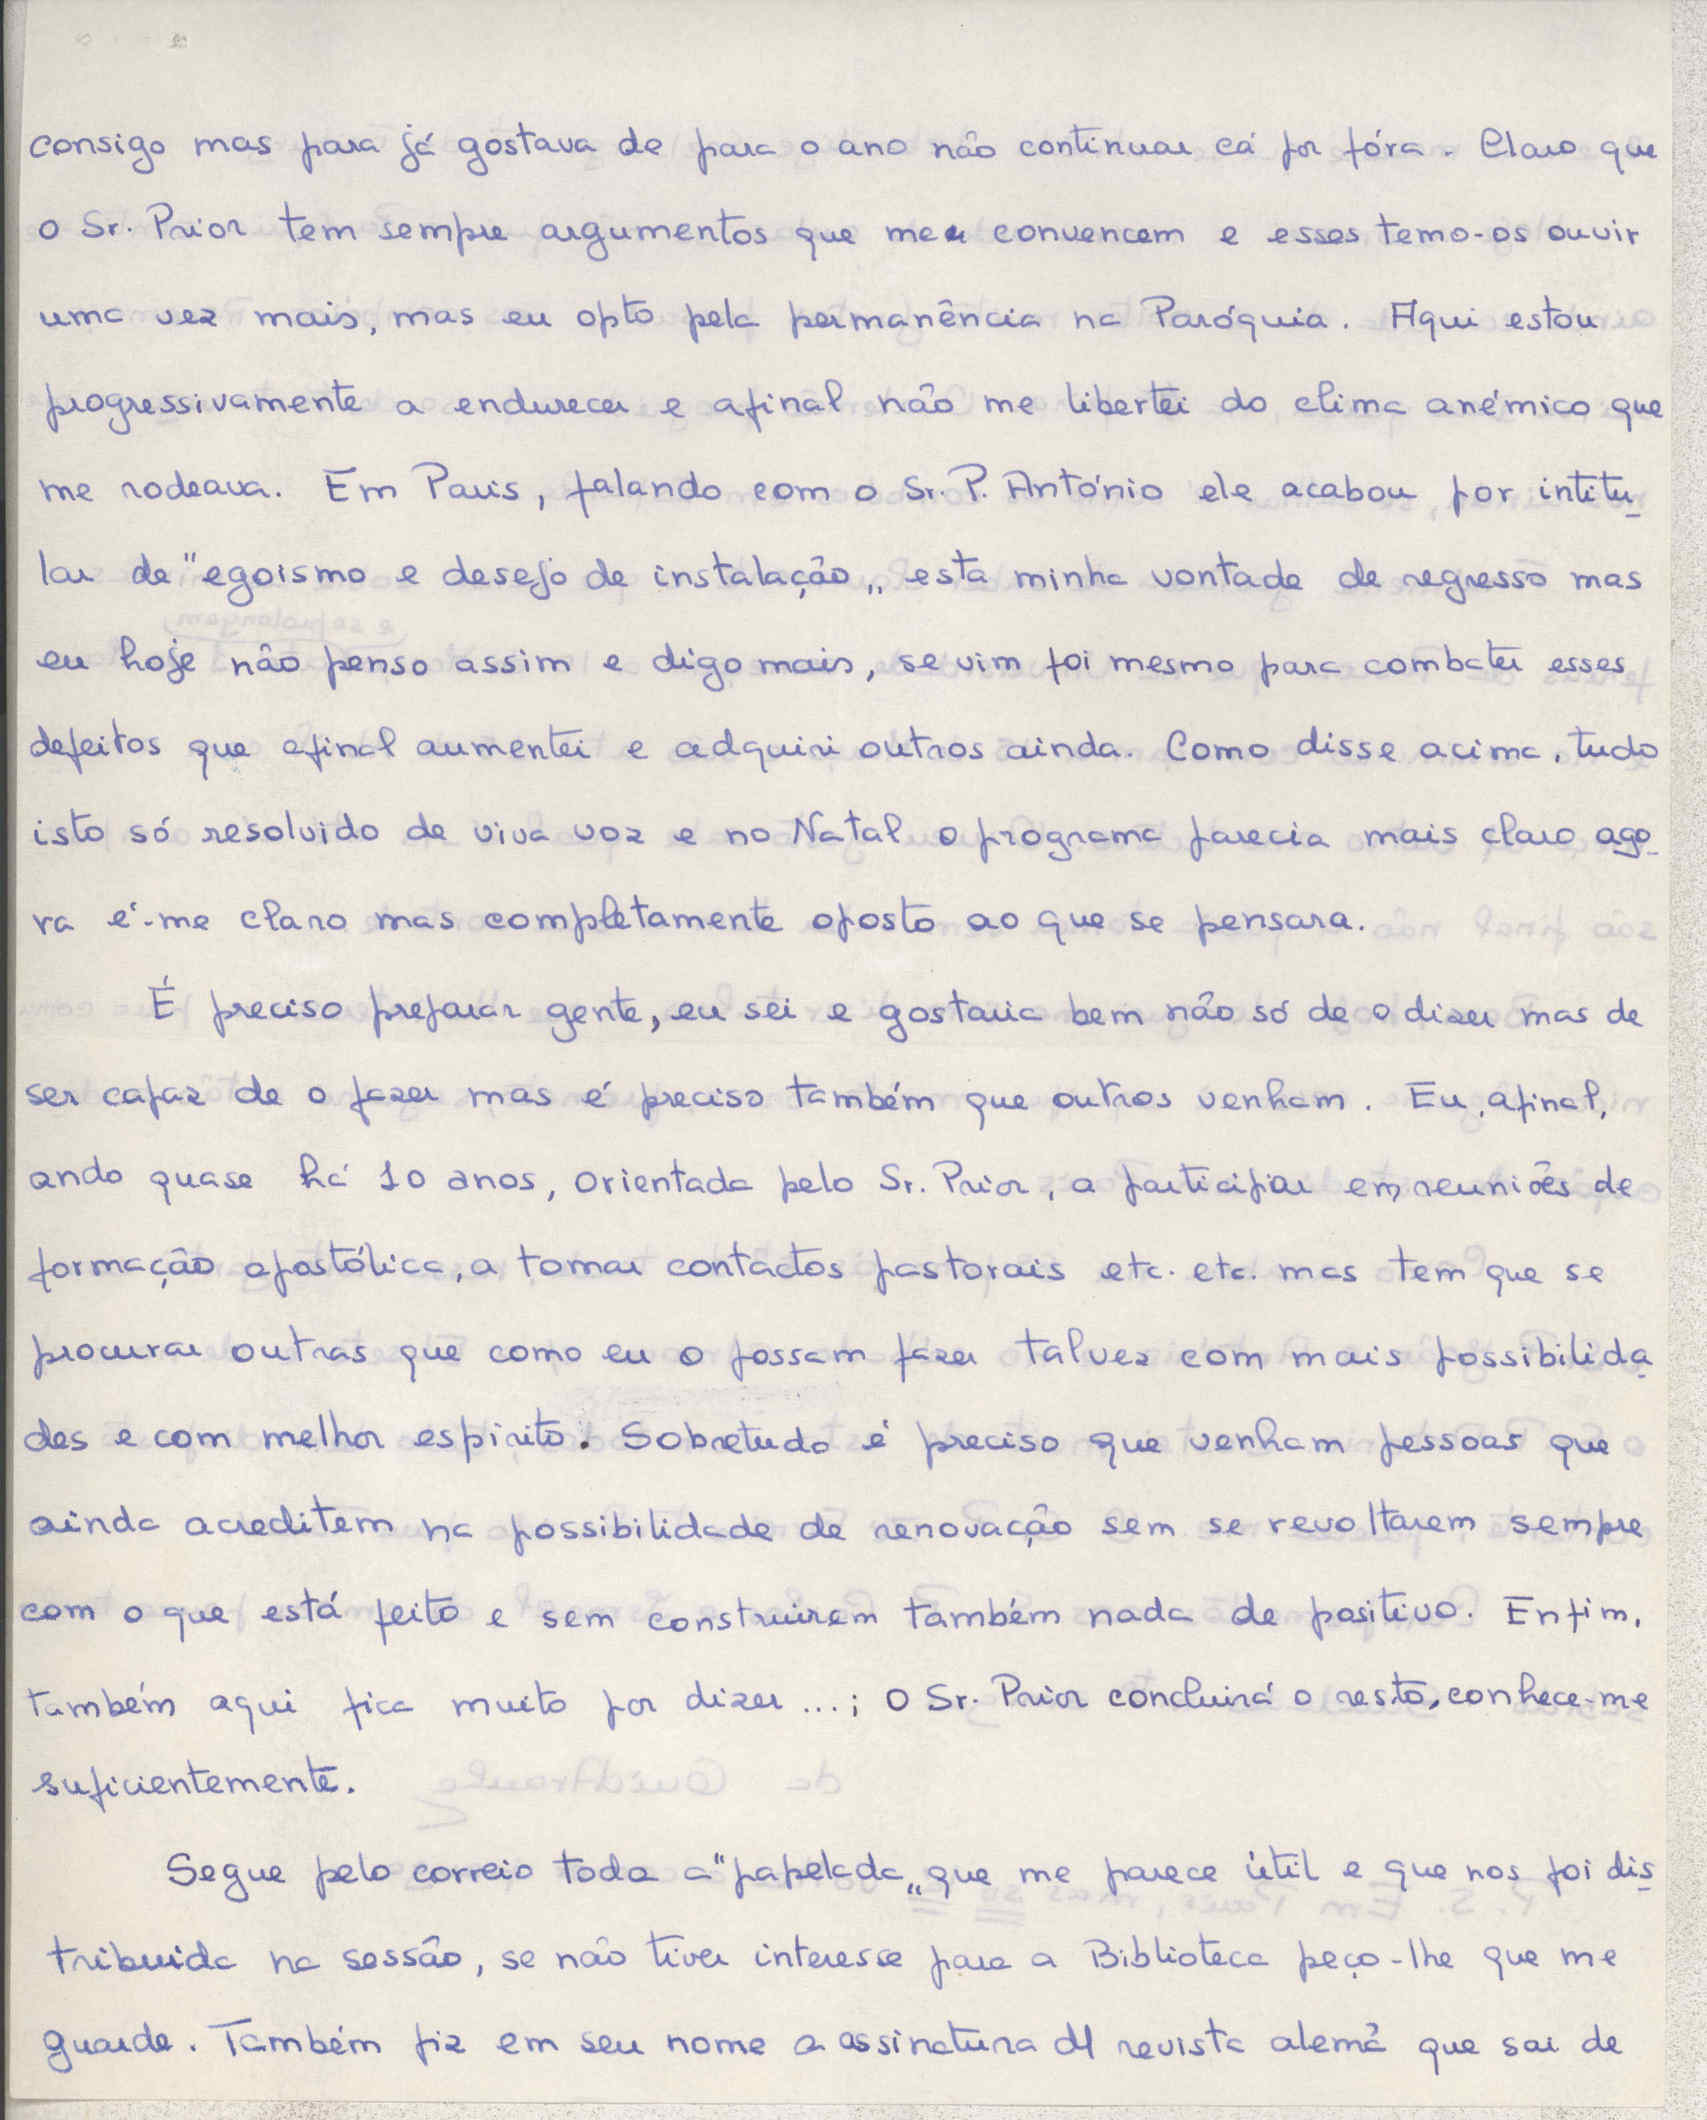 consigo mas para já gostava de para o ano não continuar cá por fóra. Claro que
o Sr. Prior tem sempre argumentos que me convencem e esses temo-os ouvir
uma vez mais, mas eu opto pela permanência na Paróquia. Aqui estou
progressivamente a endurecer e afinal não me libertei do clima anémico que
me rodeava. Em Paris, falando com o Sr. P. António ele acabou por intitu-
lar de "egoismo e desejo de instalação„ esta minha vontade de regresso mas
eu hoje não penso assim e digo mais, se vim foi mesmo para combater esses
defeitos que afinal aumentei e adquiri outros ainda. Como disse acima, tudo
isto só resolvido de viva voz e no Natal o programa parecia mais claro ago-
ra é-me claro mas completamente oposto ao que se pensara.
É preciso preparar gente, eu sei e gostaria bem não só de o dizer mas de
ser capaz de o fazer mas é preciso também que outros venham. Eu, afinal,
ando quase há 10 anos, orientada pelo Sr. Prior, a participar em reuniões de
formação apostólica, a tomar contactos pastorais etc. etc. mas tem que se
procurar outras que como eu o possam fazer talvez com mais possibilida-
des e com melhor espirito. Sobretudo é preciso que venham pessoas que
ainda acreditem na possibilidade de renovação sem se revoltarem sempre
com o que está feito e sem construirem também nada de positivo. Enfim,
também aqui fica muito por dizer ...; o Sr. Prior concluirá o resto, conhece-me
suficientemente.
Segue pelo correio toda a "papelada„ que me parece útil e que nos foi dis-
tribuida na sessão, se não tiver interesse para a Biblioteca peço-lhe que me
guarde. Também fiz em seu nome a assinatura d1 revista alemã que sai de